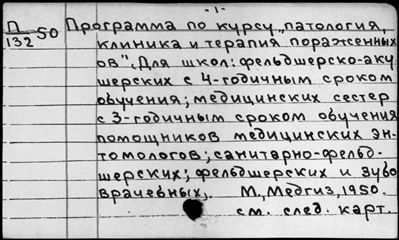 - 1 -
П/132 50 Программа по курсу „патология,
клиника и терапия пораженных
ов". Для школ: фельдшерско-аку
шерских с 4-годичным сроком
обучения; медицинских сестер
с 3-годичным сроком обучения
помощников медицинских эн-
томологов; санитарно-фельд-
шерских; фельдшерских и зубо
врачебных, М., Медгиз, 1950.
см. след. карт.